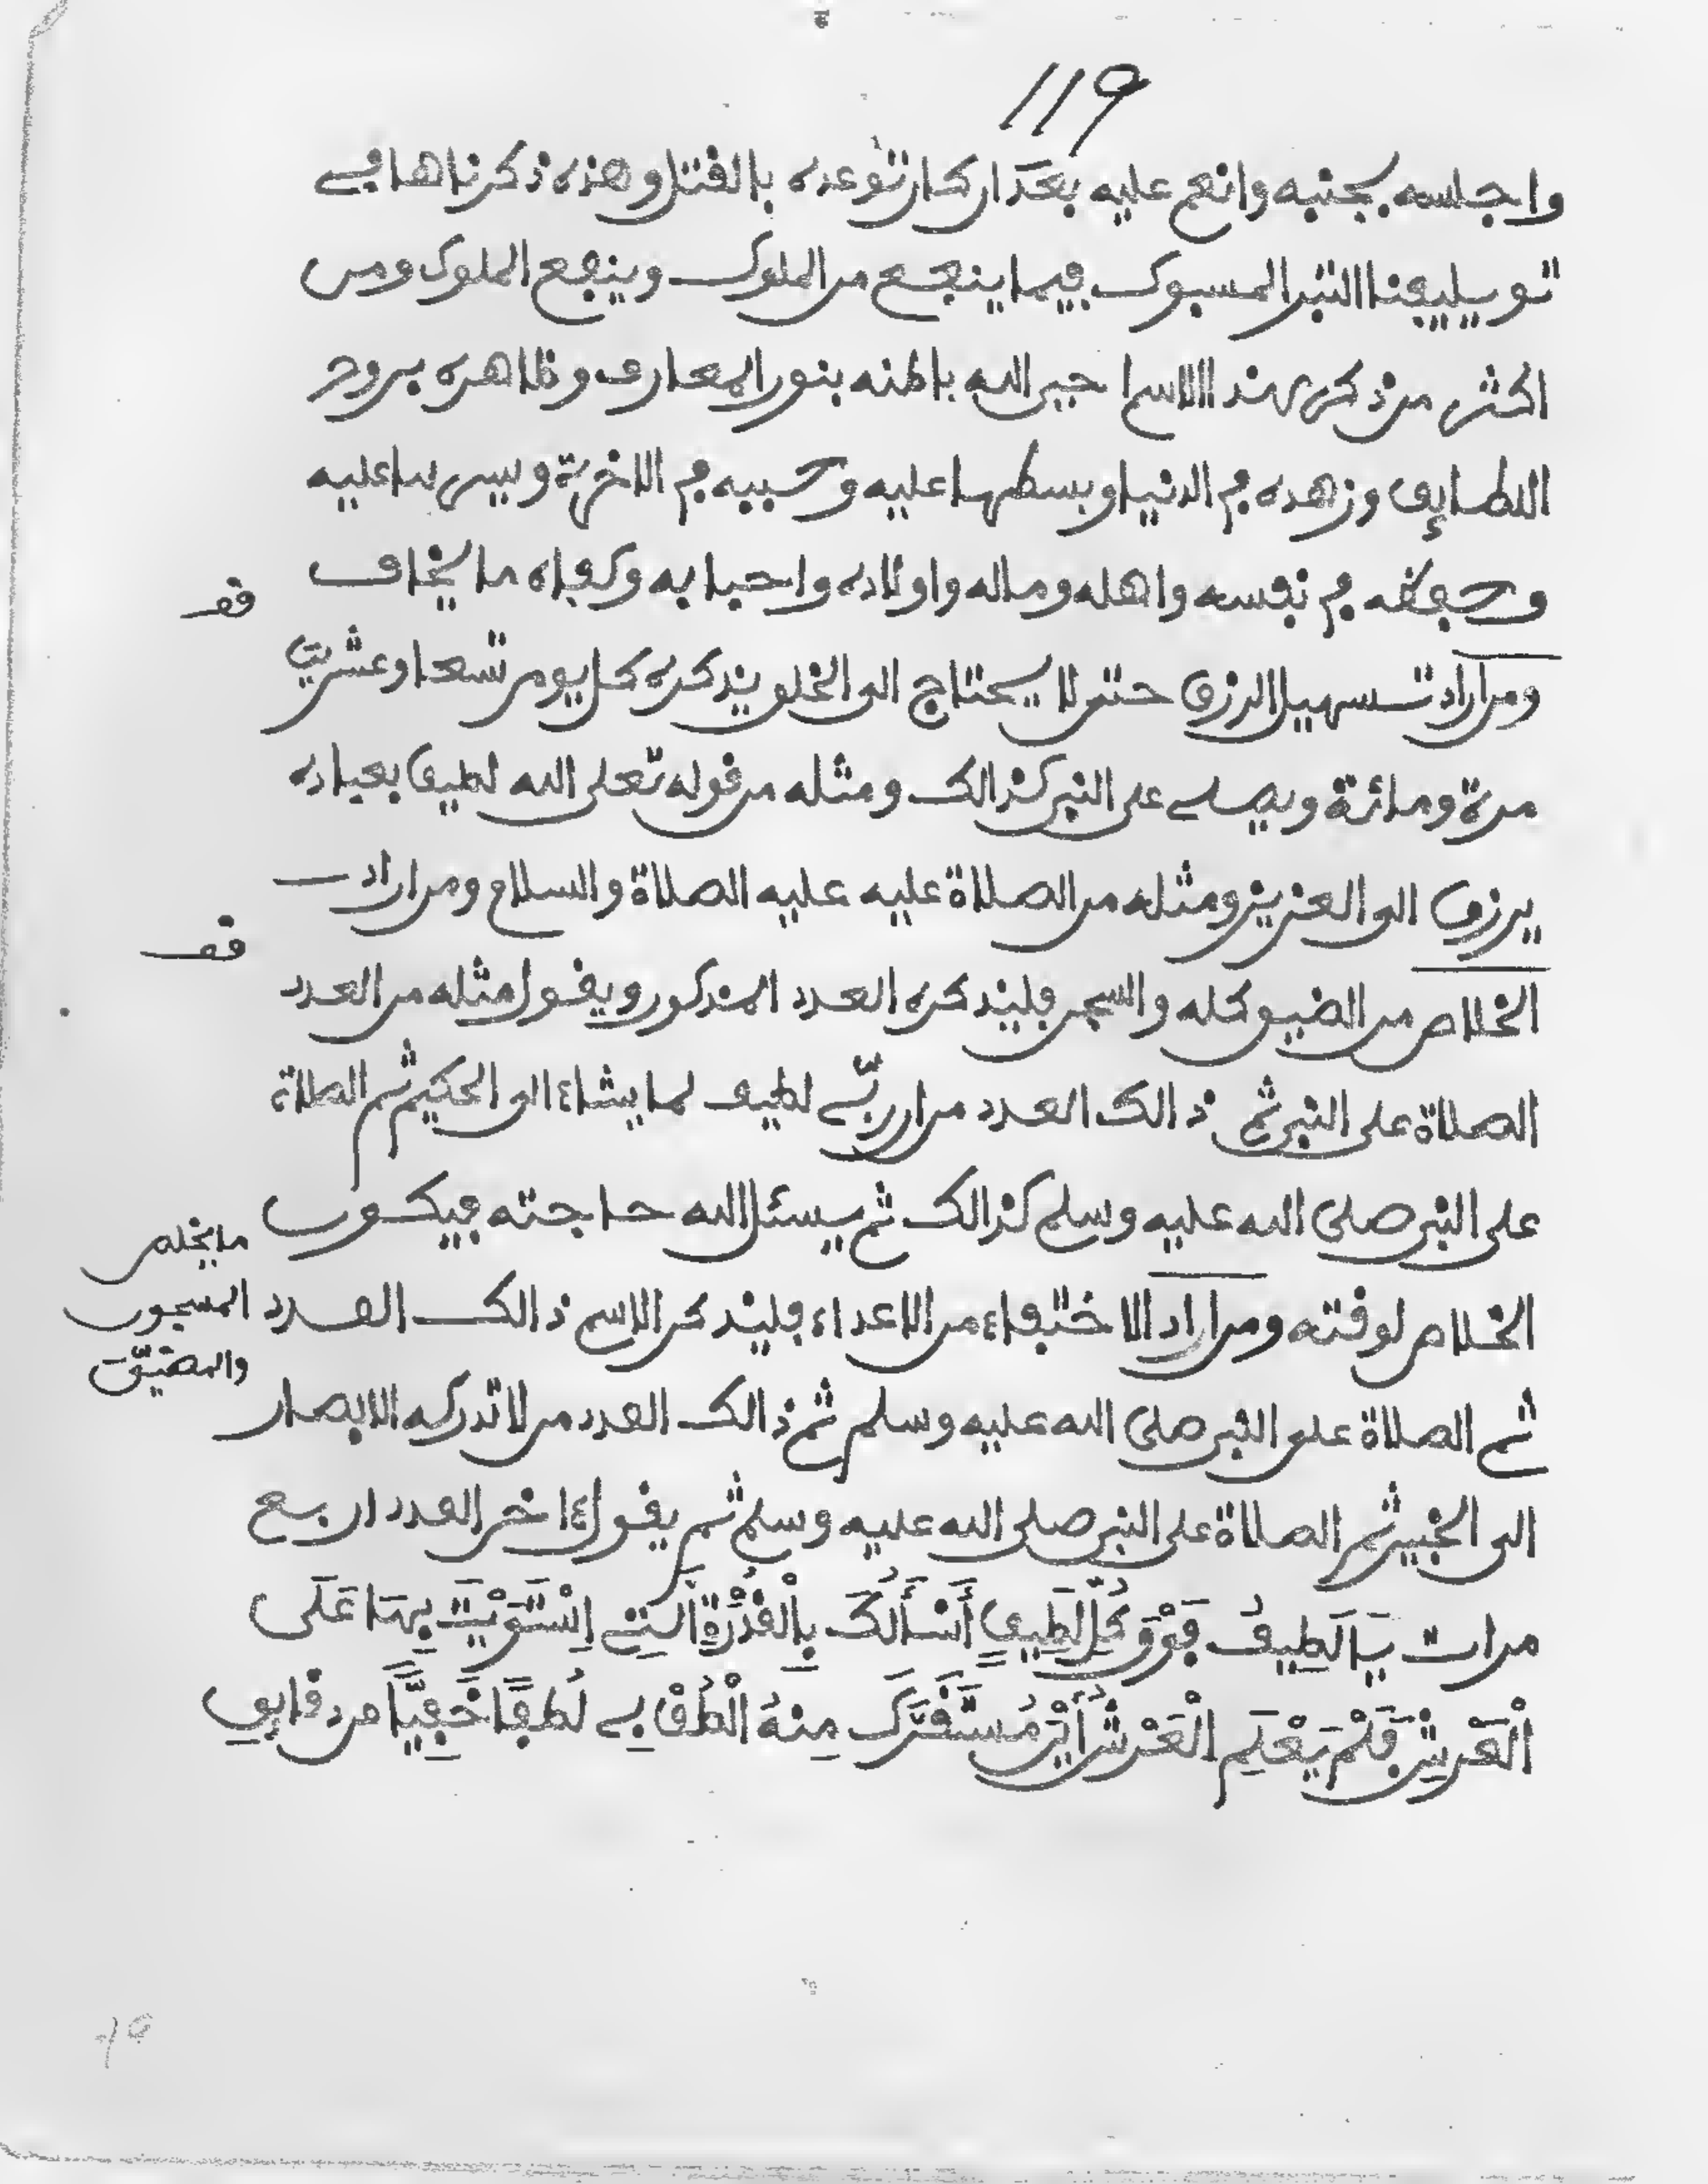 119
واجلسه بجنبه وانعم عليه بعد ان كان توعده بالقتل وهذه ذكرناها في
تويليفنا التبر المسبوك فيما ينجع من الملوك وينفع الملوك ومن
اكثر من ذكر هذا الاسم حبى الله باطنه بنور المعارف وظاهره ببرود
اللطايف وزهده في الدنيا وبسطها عليه وحببه في الاخرة ويسرها عليه
وحفظه في نفسه واهله وماله واولاده واحبابه وكفاه ما يخاف
قف
ومن اراد تسهيل الرزق حتى لا يحتاج الى الخلق يذكره كل يوم تسعا وعشرين
مرة ومائة ويصلي على النبي كذالك ومثله من قوله تعلى الله لطيف بعباده
يرزق الى العزيز ومثله من الصلاة عليه عليه الصلاة والسلام ومن اراد
قف
الخلاص من الضيق كله والسجن فليذكره العدد المذكور ويقول مثله من العدد
الصلاة على النبي ثم ذالك العدد من ان ربّي لطيف لما يشاء الى الحكيم ثم الصلاة
على النبي صلى الله عليه وسلم كذالك ثم يسئل الله حاجته فيكون
ما يخلص
المسجون
والمضيّق
الخلاص لوقته ومن اراد الاختفاء من الاعداء فليذكر الاسم ذالك العدد
ثم الصلاة على النبي صلى الله عليه وسلم ثم ذالك العدد من لا تدركه الابصار
الى الخبير ثم الصلاة على النبي صلى الله عليه وسلم ثم يقول ءاخر العدد اربع
مرات يَا لَطِيفُ فَوْقَ كُلِّ لَطِيفٍ أَسْأَلُكَ بِالْقُدْرَةِ التِي اِسْتَوَيْتَ بِهَا عَلَى
الْعَرْشِ فَلَمْ يَعْلَمِ الْعَرْشُ أَيْنَ مُسْتَقَرَّكَ مِنْهُ الْطُفْ بِي لُطْفًا خَفِيًّا من دقايق